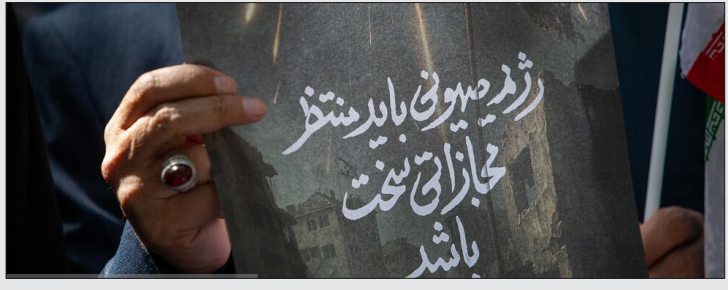 رژیم صهیونی باید منتظر
مجازاتی سخت
باشد